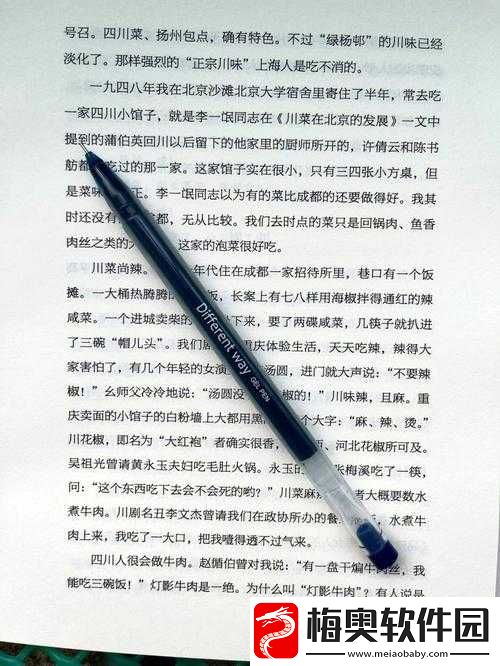 号召。四川菜、扬州包点，确有特色。不过“绿杨邨”的川味已经
淡化了。那样强烈的“正宗川味”上海人是吃不消的。
一九四八年我在北京沙滩北京大学宿舍里寄住了半年，常去吃
一家四川小馆子，就是李一氓同志在《川菜在北京的发展》一文中
提到的蒲伯英回川以后留下的他家里的厨师所开的，许倩云和陈书
舫都 吃过的那一家。这家馆子实在很小，只有三四张小方桌，但
是菜味 正。李一氓同志以为有的菜比成都的还要做得好。我其
时还没有 都，无从比较。我们去时点的菜只是回锅肉、鱼香
肉丝之类的大 。这家的泡菜很好吃。
川菜尚辣。 年代住在成都一家招待所里，巷口有一个饭
摊。一大桶热腾腾 饭，长案上有七八样用海椒拌得通红的辣
咸菜。一个进城卖柴的 下来，要了两碟咸菜，几筷子就扒进
了三碗“帽儿头”。我们剧 庆体验生活，天天吃辣，辣得大
家害怕了，有几个年轻的女演 汤圆，进门就大声说：“不要辣
椒！”幺师父冷冷地说：“汤圆没 椒的！”川味辣，且麻。重
庆卖面的小馆子的白粉墙上大都用黑 个大字：“麻、辣、烫。”
川花椒，即名为“大红袍”者确实很香， 西、河北花椒所可及。
吴祖光曾请黄永玉夫妇吃毛肚火锅。永玉的 张梅溪吃了一筷，
问：“这个东西吃下去会不会死的哟？”川菜麻辣 者大概要数水
煮牛肉。川剧名丑李文杰曾请我们在政协所办的餐 饭，水煮牛
肉上来，我吃了一大口，把我噎得透不过气来。
四川人很会做牛肉。赵循伯曾对我说：“有一盘干煸牛肉丝，我
能吃三碗饭！”灯影牛肉是一绝。为什么叫“灯影牛肉”？有人说是
Different way
GEL PEN
梅奥软件园
www.meiaobaby.com